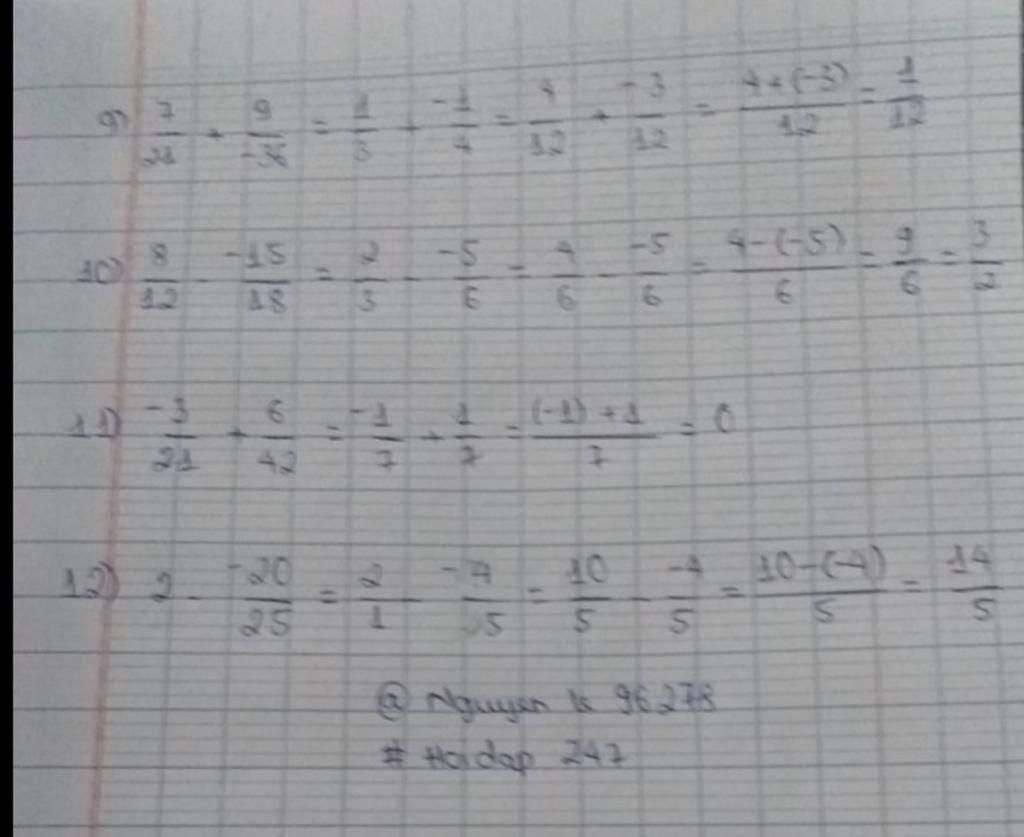 9) 7/21 + 9/-36 = 1/3 + -1/4 = 4/12 + -3/12 = 4+(-3)/12 = 1/12
10) 8/12 - -15/18 = 2/3 - -5/6 = 4/6 - -5/6 = 4-(-5)/6 = 9/6 = 3/2
11) -3/21 + 6/42 = -1/7 + 1/7 = (-1)+1/7 = 0
12) 2 - -20/25 = 2/1 - -4/5 = 10/5 - -4/5 = 10-(-4)/5 = 14/5
@ Nguyen k 96278
# Hoidap 247